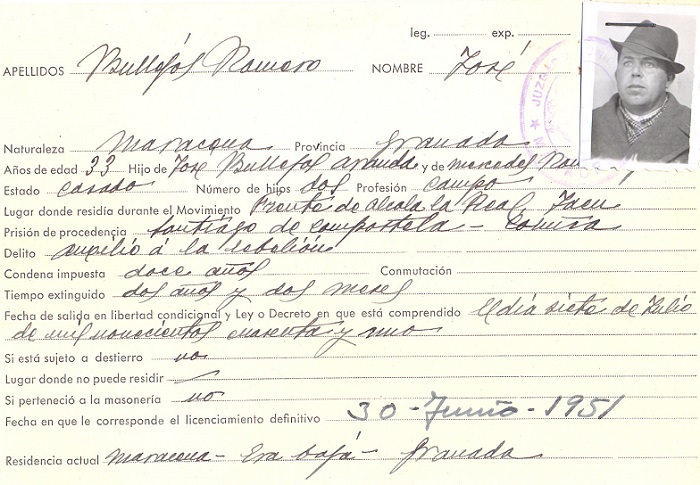 leg. exp.
APELLIDOS Bullejos Romero NOMBRE José
Naturaleza Maracena Provincia Granada
Años de edad 33 Hijo de José Bullejos Aranda y de Mercedes
Estado Casado Número de hijos dos Profesión Campo
Lugar donde residía durante el Movimiento Frente de Alcala la Real Jaen
Prisión de procedencia Santiago de Compostela - Coruña
Delito Auxilio á la rebelión
Condena impuesta doce años Conmutación
Tiempo extinguido dos años y dos meses
Fecha de salida en libertad condicional y Ley o Decreto en que está comprendido El dia siete de Julio
de mil novecientos cuarenta y uno
Si está sujeto a destierro no
Lugar donde no puede residir
Si perteneció a la masonería no
Fecha en que le corresponde el licenciamiento definitivo 30 - Junio - 1951
Residencia actual Maracena - Era baja - Granada